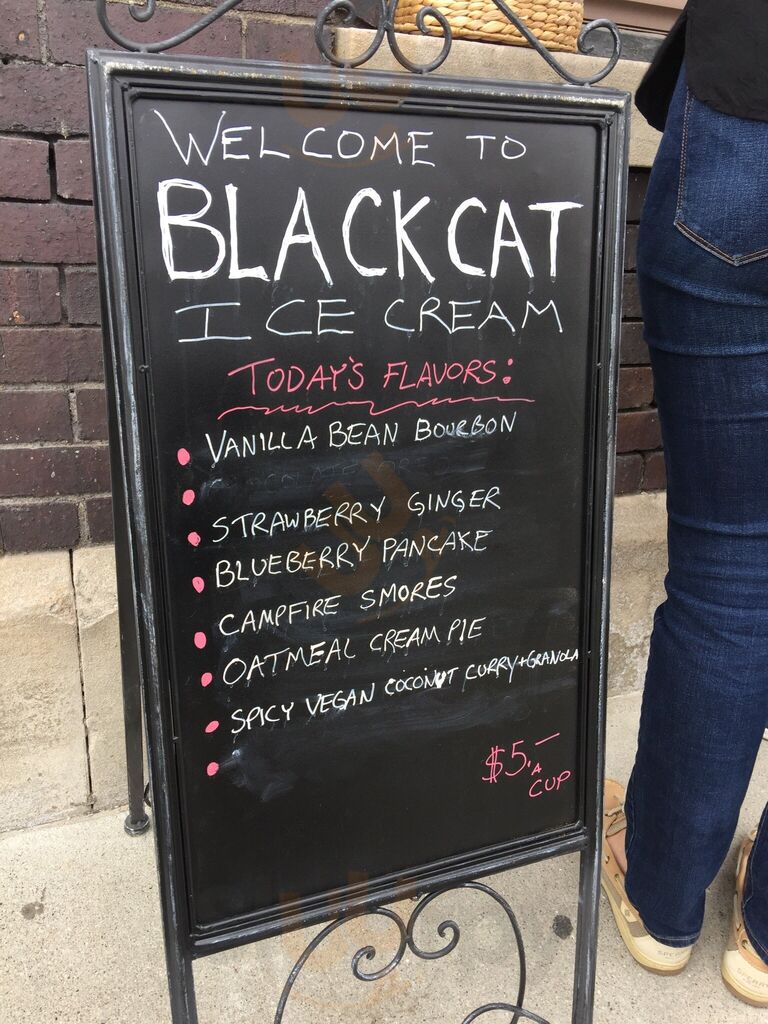 WELCOME TO
BLACKCAT
ICE CREAM
TODAY'S FLAVORS:
VANILLA BEAN BOURBON
STRAWBERRY GINGER
BLUEBERRY PANCAKE
CAMPFIRE SMORES
OATMEAL CREAM PIE
SPICY VEGAN COCONUT CURRY+GRANOLA
$5.-
A
CUP